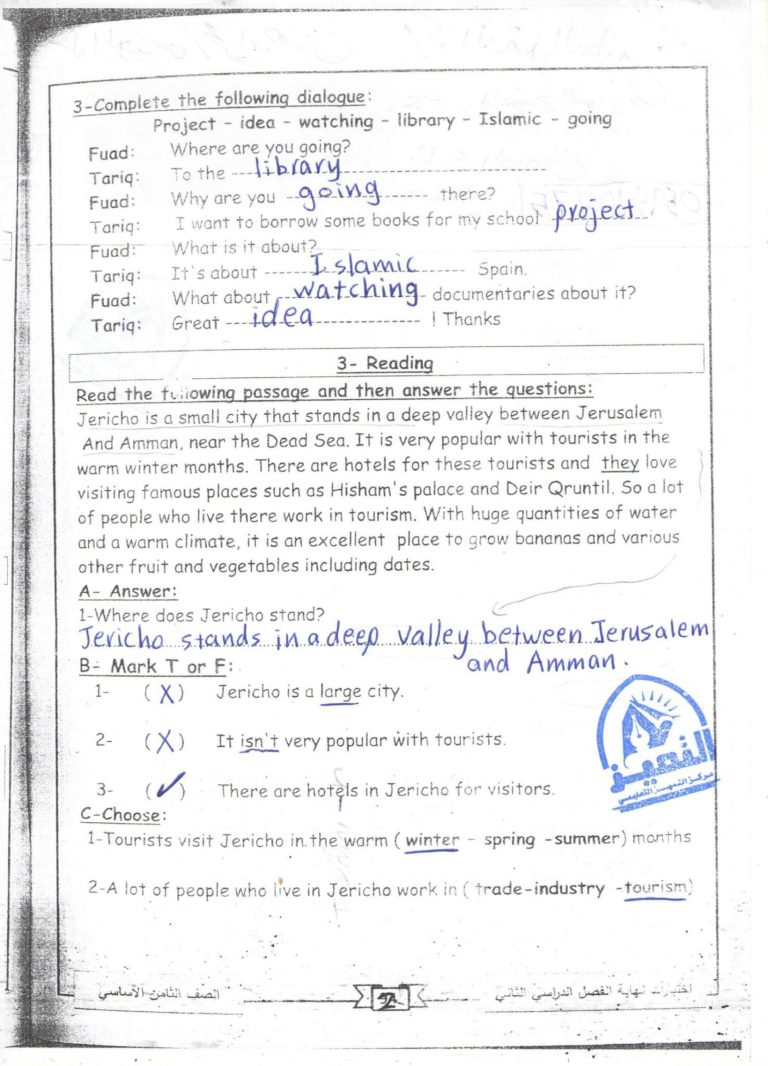 3-Complete the following dialogue:
Project - idea - watching - library - Islamic - going
Fuad: Where are you going?
Tariq: To the library
Fuad: Why are you going there?
Tariq: I want to borrow some books for my school project
Fuad: What is it about?
Tariq: It's about Islamic Spain.
Fuad: What about watching documentaries about it?
Tariq: Great idea ! Thanks
3- Reading
Read the following passage and then answer the questions:
Jericho is a small city that stands in a deep valley between Jerusalem
And Amman, near the Dead Sea. It is very popular with tourists in the
warm winter months. There are hotels for these tourists and they love
visiting famous places such as Hisham's palace and Deir Qruntil. So a lot
of people who live there work in tourism. With huge quantities of water
and a warm climate, it is an excellent place to grow bananas and various
other fruit and vegetables including dates.
A- Answer:
1-Where does Jericho stand?
Jericho stands in a deep valley between Jerusalem
and Amman.
B- Mark T or F:
1- (X) Jericho is a large city.
2- (X) It isn't very popular with tourists.
3- (✓) There are hotels in Jericho for visitors.
التميز
مركز التميز التعليمي
C-Choose:
1-Tourists visit Jericho in the warm ( winter - spring -summer) months
2-A lot of people who live in Jericho work in ( trade-industry -tourism)
اختبارات نهاية الفصل الدراسي الثاني
2
الصف الثامن الأساسي